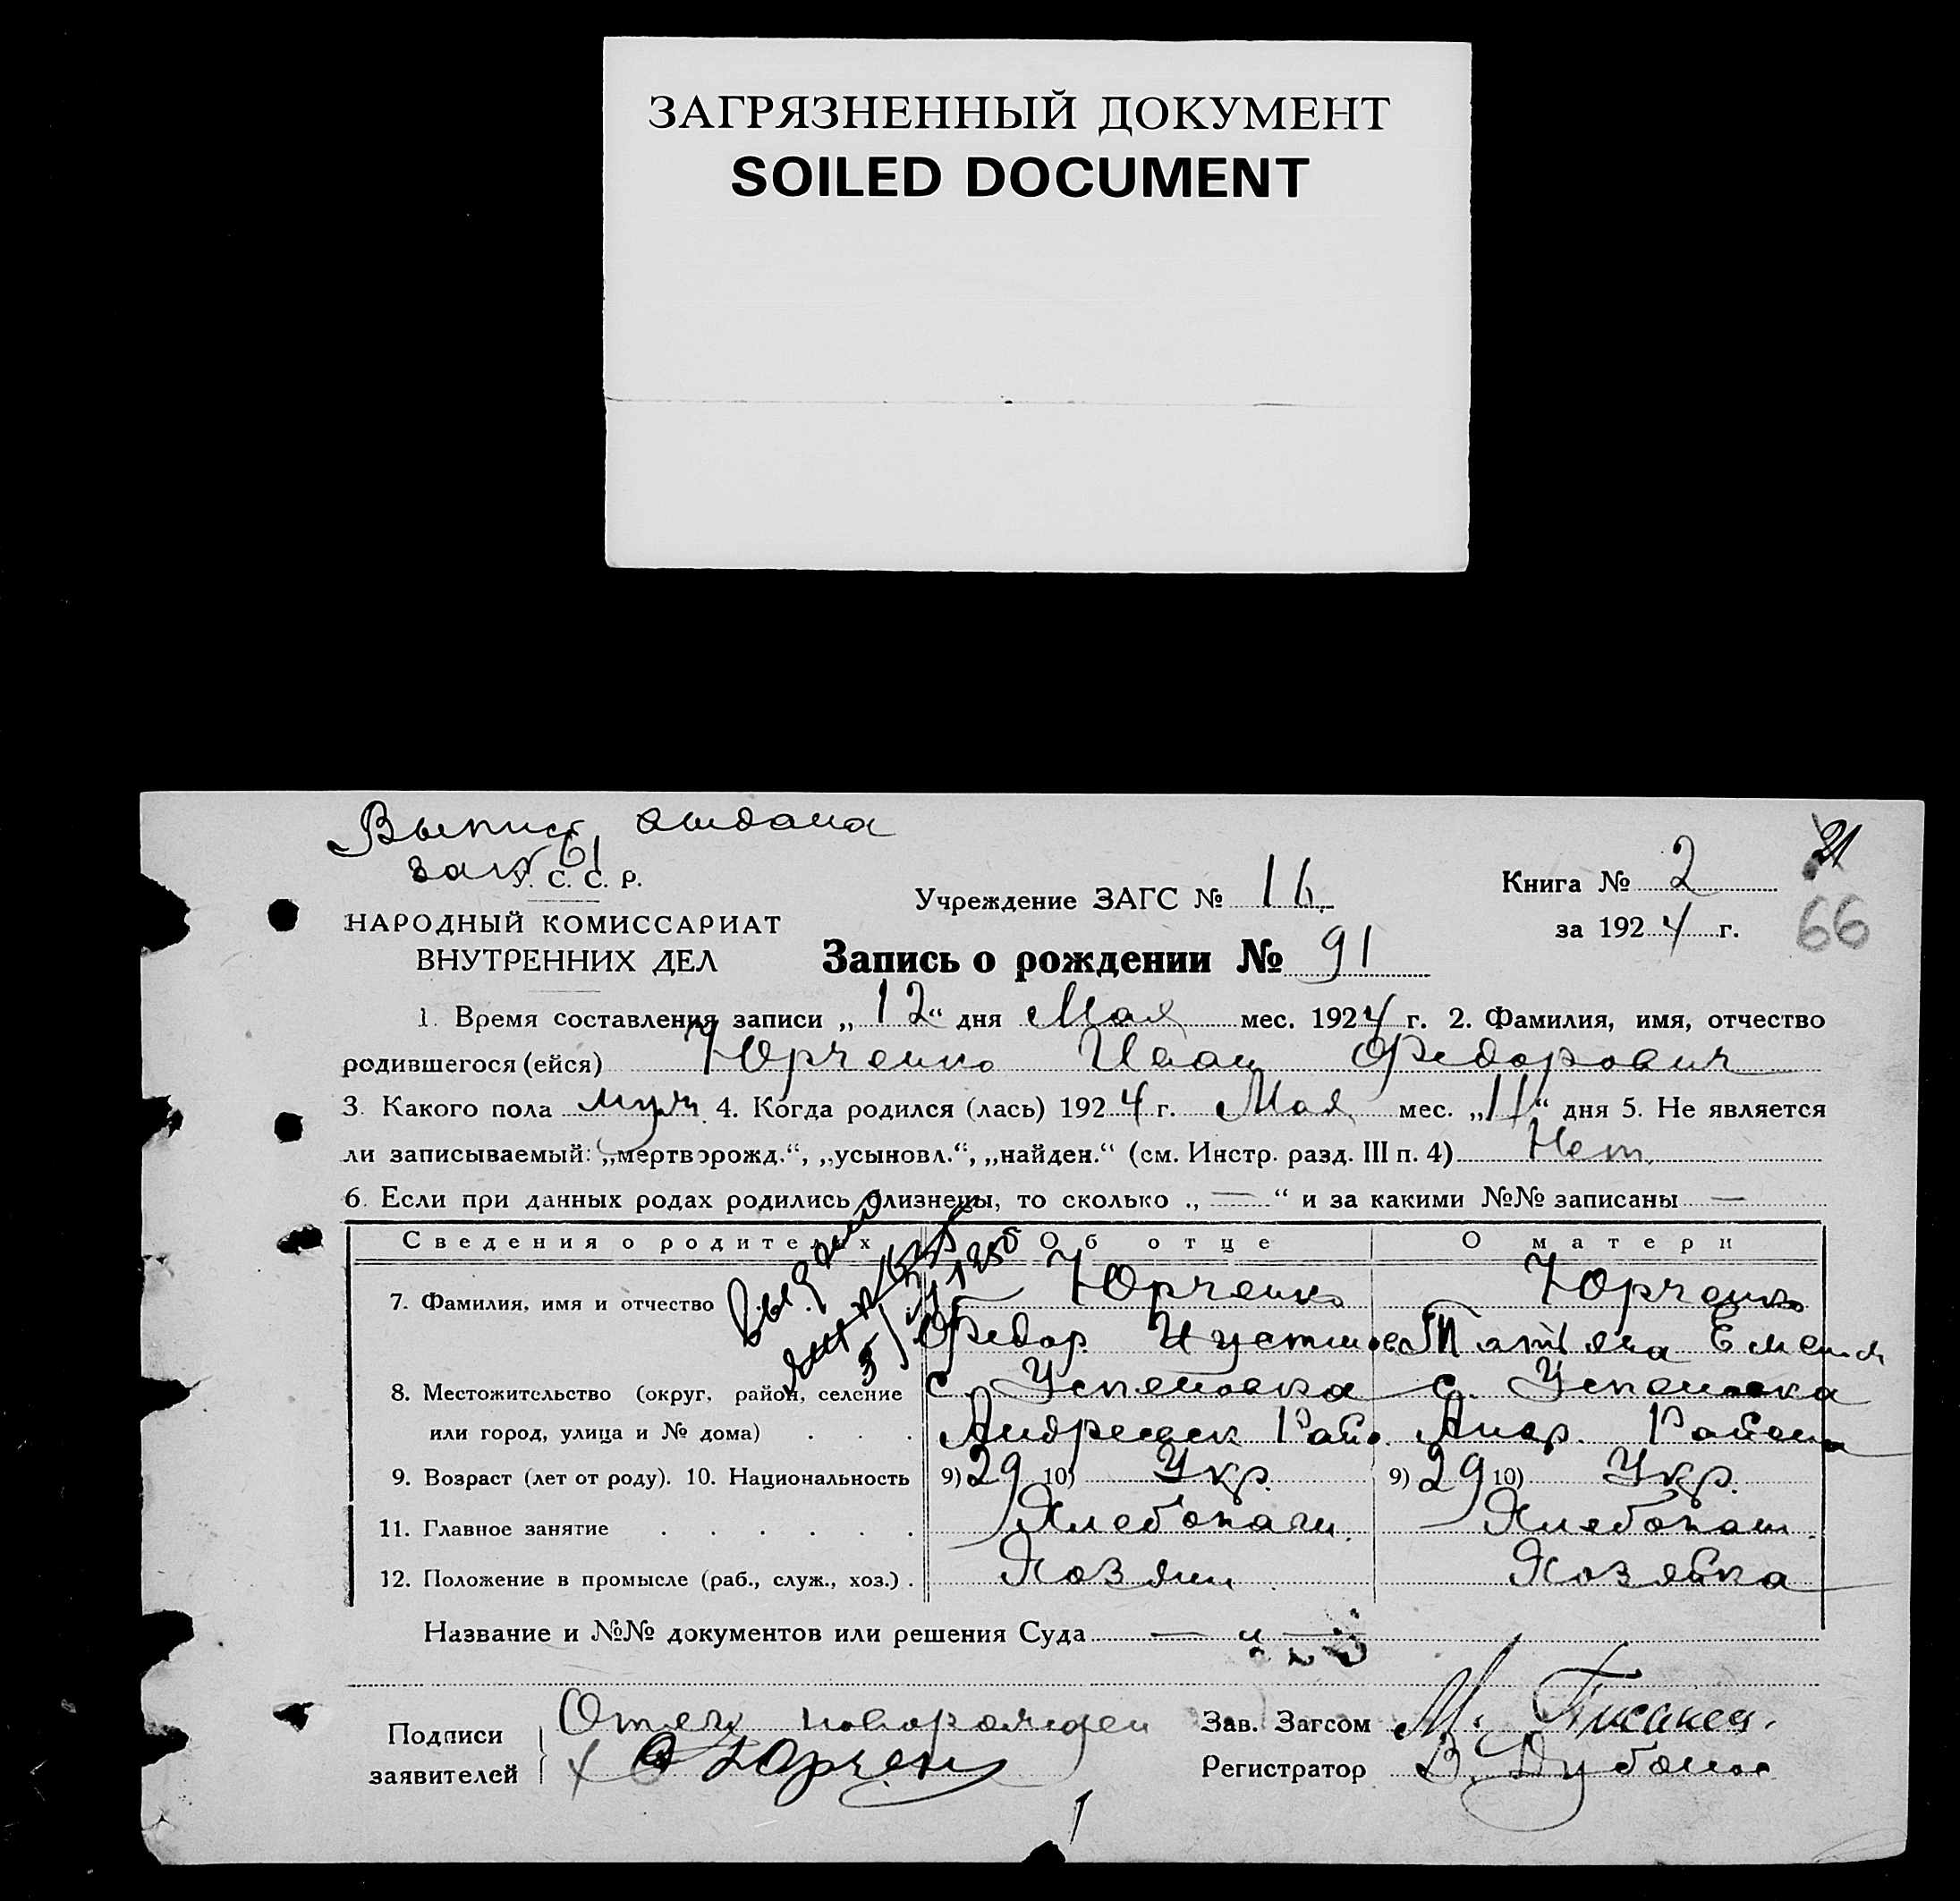 ЗАГРЯЗНЕННЫЙ ДОКУМЕНТ
SOILED DOCUMENT
Выпись выдана
21
У. С. С. Р.
Учреждение ЗАГС № 16
Книга № 2
66
НАРОДНЫЙ КОМИССАРИАТ
ВНУТРЕННИХ ДЕЛ
за 1924 г.
Запись о рождении № 91
1. Время составления записи „12“ дня Мая мес. 1924 г. 2. Фамилия, имя, отчество
родившегося (ейся) Юрченко Иван Федорович
3. Какого пола муж. 4. Когда родился (лась) 1924 г. Мая мес. „11“ дня 5. Не является
ли записываемый: „мертворожд.“, „усыновл.“, „найден.“ (см. Инстр. разд. III п. 4) Нет
6. Если при данных родах родились близнецы, то сколько „ — “ и за какими №№ записаны —
Сведения о родителях Об отце О матери
7. Фамилия, имя и отчество Юрченко Юрченко
Федор Иустинов Татьяна Емельян
8. Местожительство (округ, район, селение с. Успеновка с. Успеновка
или город, улица и № дома) . . . Андреевск Райо. Андр. Района
9. Возраст (лет от роду). 10. Национальность 9) 29 10) Укр. 9) 29 10) Укр.
11. Главное занятие . . . . . . Хлебопаш. Хлебопаш.
12. Положение в промысле (раб., служ., хоз.) . Хозяин Хозяйка
Название и №№ документов или решения Суда —
Подписи
заявителей
Отец новорожден
Юрчен
Зав. Загсом М. Писанец.
Регистратор В. Дубо